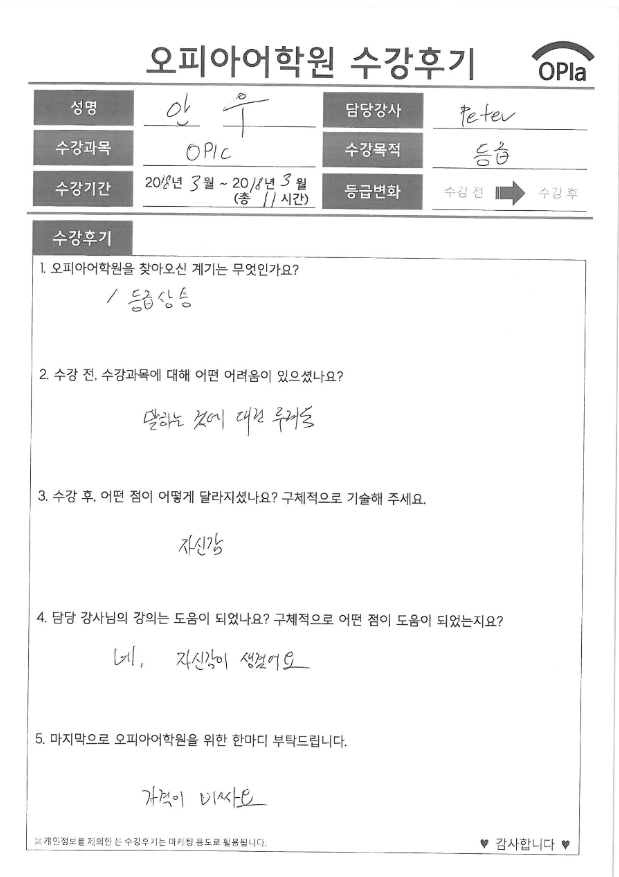 오피아어학원 수강후기
OPIa
성명 안 우 담당강사 Peter
수강과목 OPIc 수강목적 등급
수강기간 2018년 3월 ~ 2018년 3월 등급변화 수강 전 수강 후
(총 11 시간)
수강후기
1. 오피아어학원을 찾아오신 계기는 무엇인가요?
/ 등급상승
2. 수강 전, 수강과목에 대해 어떤 어려움이 있으셨나요?
말하는 것에 대한
3. 수강 후, 어떤 점이 어떻게 달라지셨나요? 구체적으로 기술해 주세요.
자신감
4. 담당 강사님의 강의는 도움이 되었나요? 구체적으로 어떤 점이 도움이 되었는지요?
네, 자신감이 생겼어요
5. 마지막으로 오피아어학원을 위한 한마디 부탁드립니다.
가격이 비싸요
※개인정보를 제외한 본 수강후기는 마케팅 용도로 활용됩니다.
♥ 감사합니다 ♥